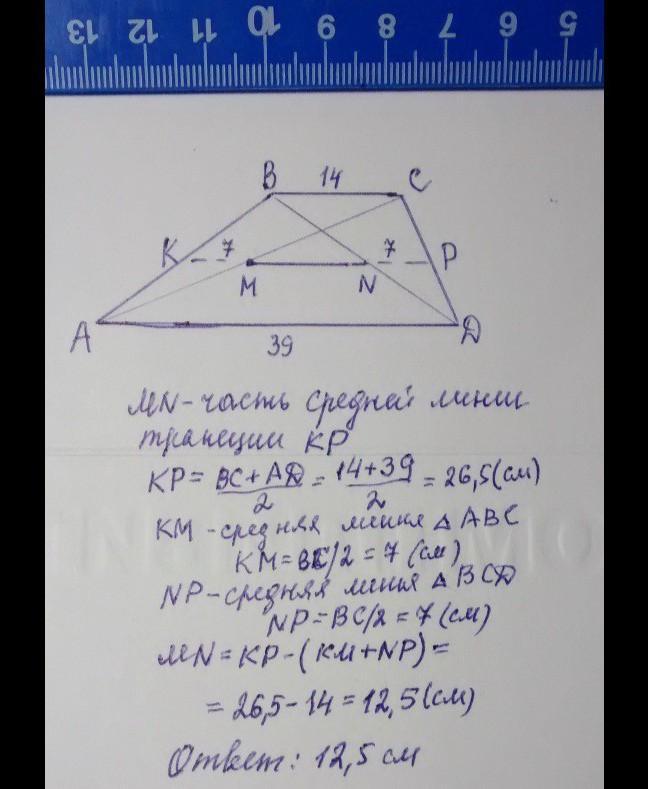 13 12 11 10 9 8 7 6 5
B 14 C
K 7 7 P
M N
A D
39
MN - часть средней линии
трапеции KP
KP = BC + AD / 2 = 14 + 39 / 2 = 26,5 (см)
KM - средняя линия △ ABC
KM = BC/2 = 7 (см)
NP - средняя линия △ BCD
NP = BC/2 = 7 (см)
MN = KP - (KM + NP) =
= 26,5 - 14 = 12,5 (см)
Ответ: 12,5 см